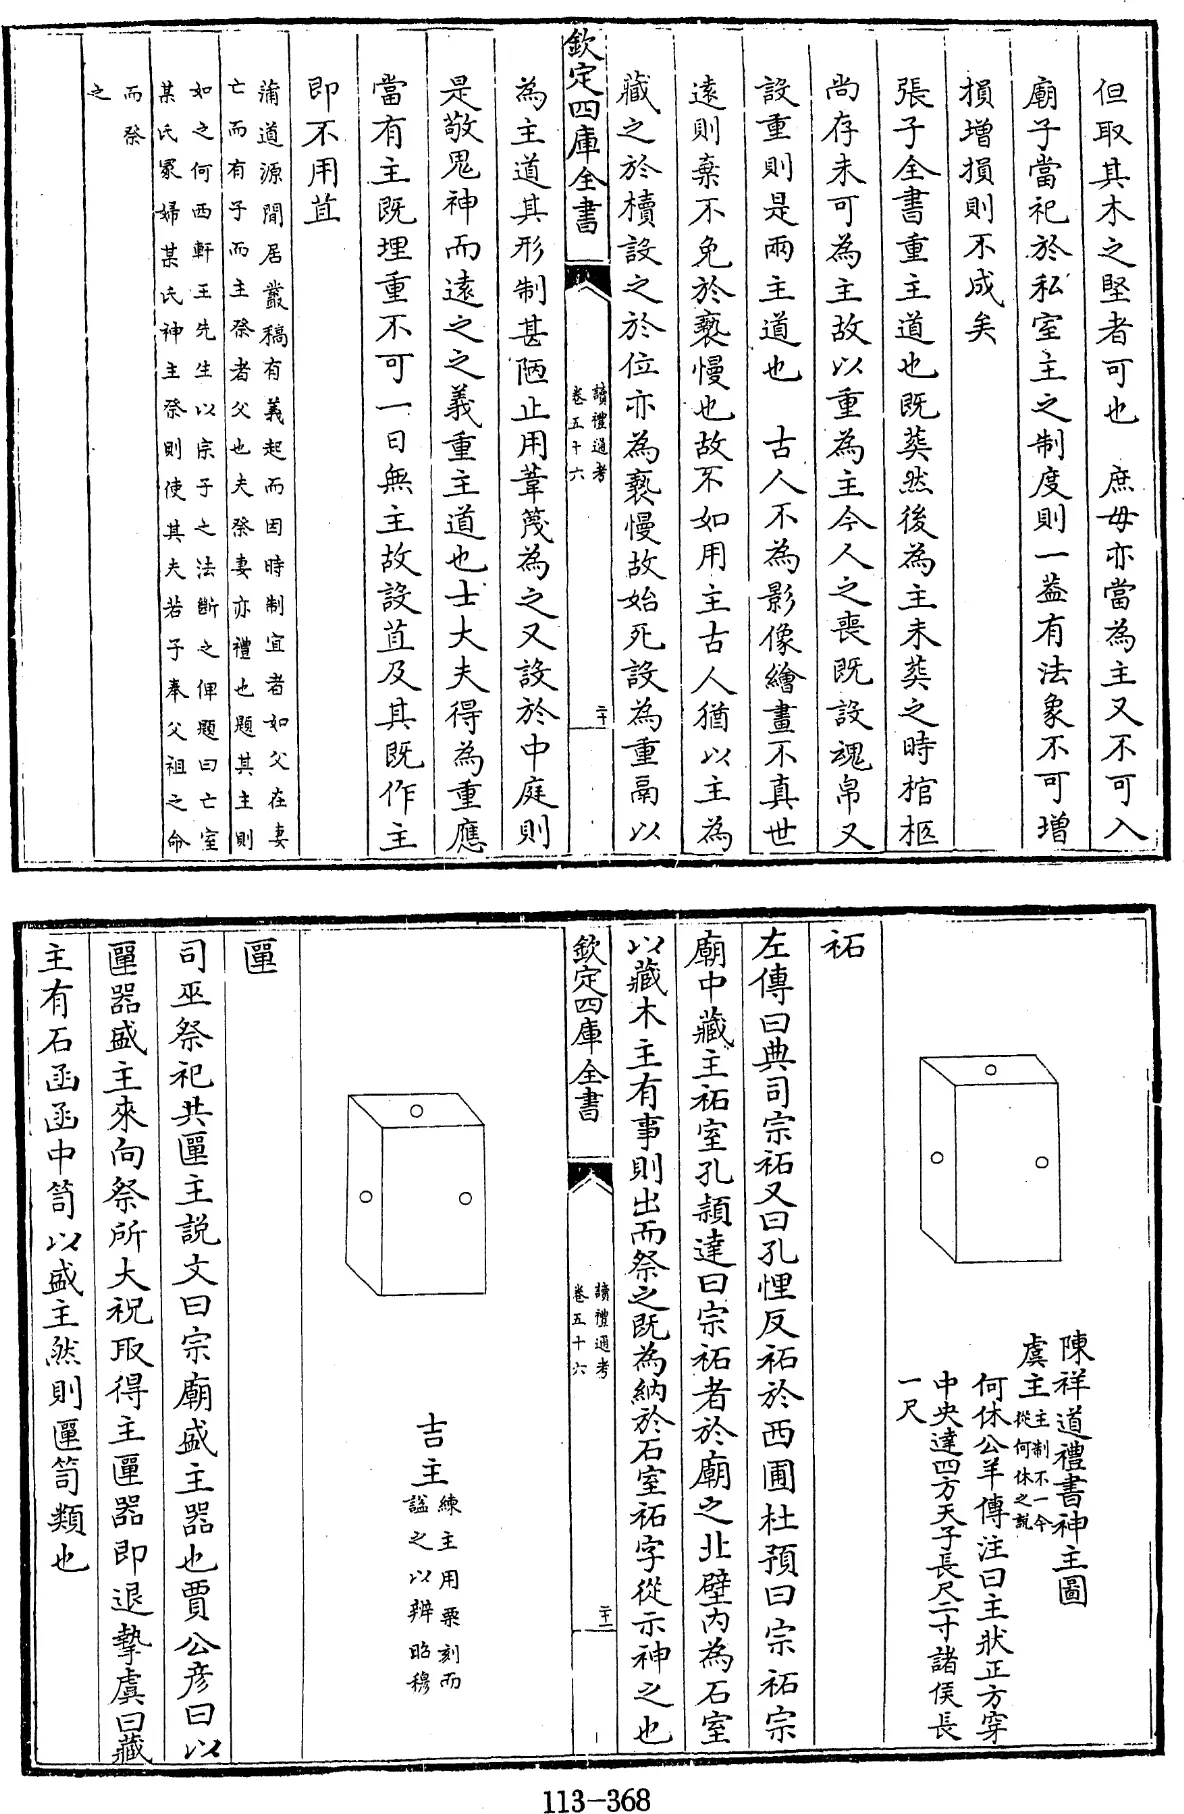 但取其木之堅者可也　庶母亦當為主又不可入
廟子當祀於私室主之制度則一蓋有法象不可增
損增損則不成矣
張子全書重主道也既葬然後為主未葬之時棺柩
尚存未可為主故以重為主今人之喪既設魂帛又
設重則是兩主道也　古人不為影像繪畫不真世
遠則棄不免於褻慢也故不如用主古人猶以主為
藏之於櫝設之於位亦為褻慢故始死設為重鬲以
欽定四庫全書
讀禮通考
卷五十六
二十
為主道其形制甚陋止用葦篾為之又設於中庭則
是敬鬼神而遠之之義重主道也士大夫得為重應
當有主既埋重不可一日無主故設苴及其既作主
即不用苴
蒲道源閒居叢稿有義起而因時制宜者如父在妻
亡而有子而主祭者父也夫祭妻亦禮也題其主則
如之何西軒王先生以宗子之法斷之俾題曰亡室
某氏冢婦某氏神主祭則使其夫若子奉父祖之命
而祭
之
陳祥道禮書神主圖
虞主主制不一今
從何休之說
何休公羊傳注曰主狀正方穿
中央達四方天子長尺二寸諸侯長
一尺
祏
左傳曰典司宗祏又曰孔悝反祏於西圃杜預曰宗祏宗
廟中藏主祏室孔頴達曰宗祏者於廟之北壁內為石室
以藏木主有事則出而祭之既為納於石室祏字從示神之也
欽定四庫全書
讀禮通考
卷五十六
二十一
吉主練主用栗刻而
諡之以辨昭穆
匰
司巫祭祀共匰主說文曰宗廟盛主器也賈公彦曰以
匰器盛主來向祭所大祝取得主匰器即退摯虞曰藏
主有石函函中笥以盛主然則匰笥類也
113-368